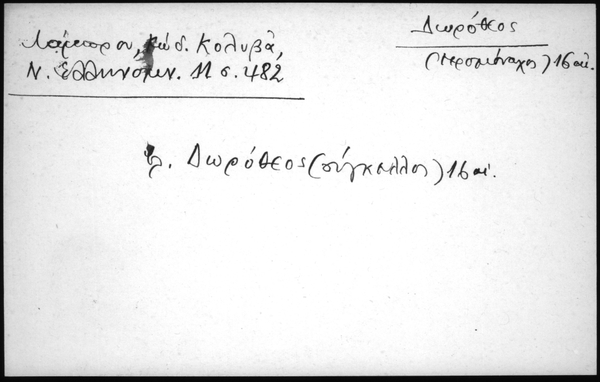 Λάμπρου, Κώδ. Κολυβᾶ,
Ν. Ἑλληνομν. 11 σ. 482
Δωρόθεος
(ἱερομόναχος) 16 αἰ.
βλ. Δωρόθεος (σύγκελλος) 16 αἰ.